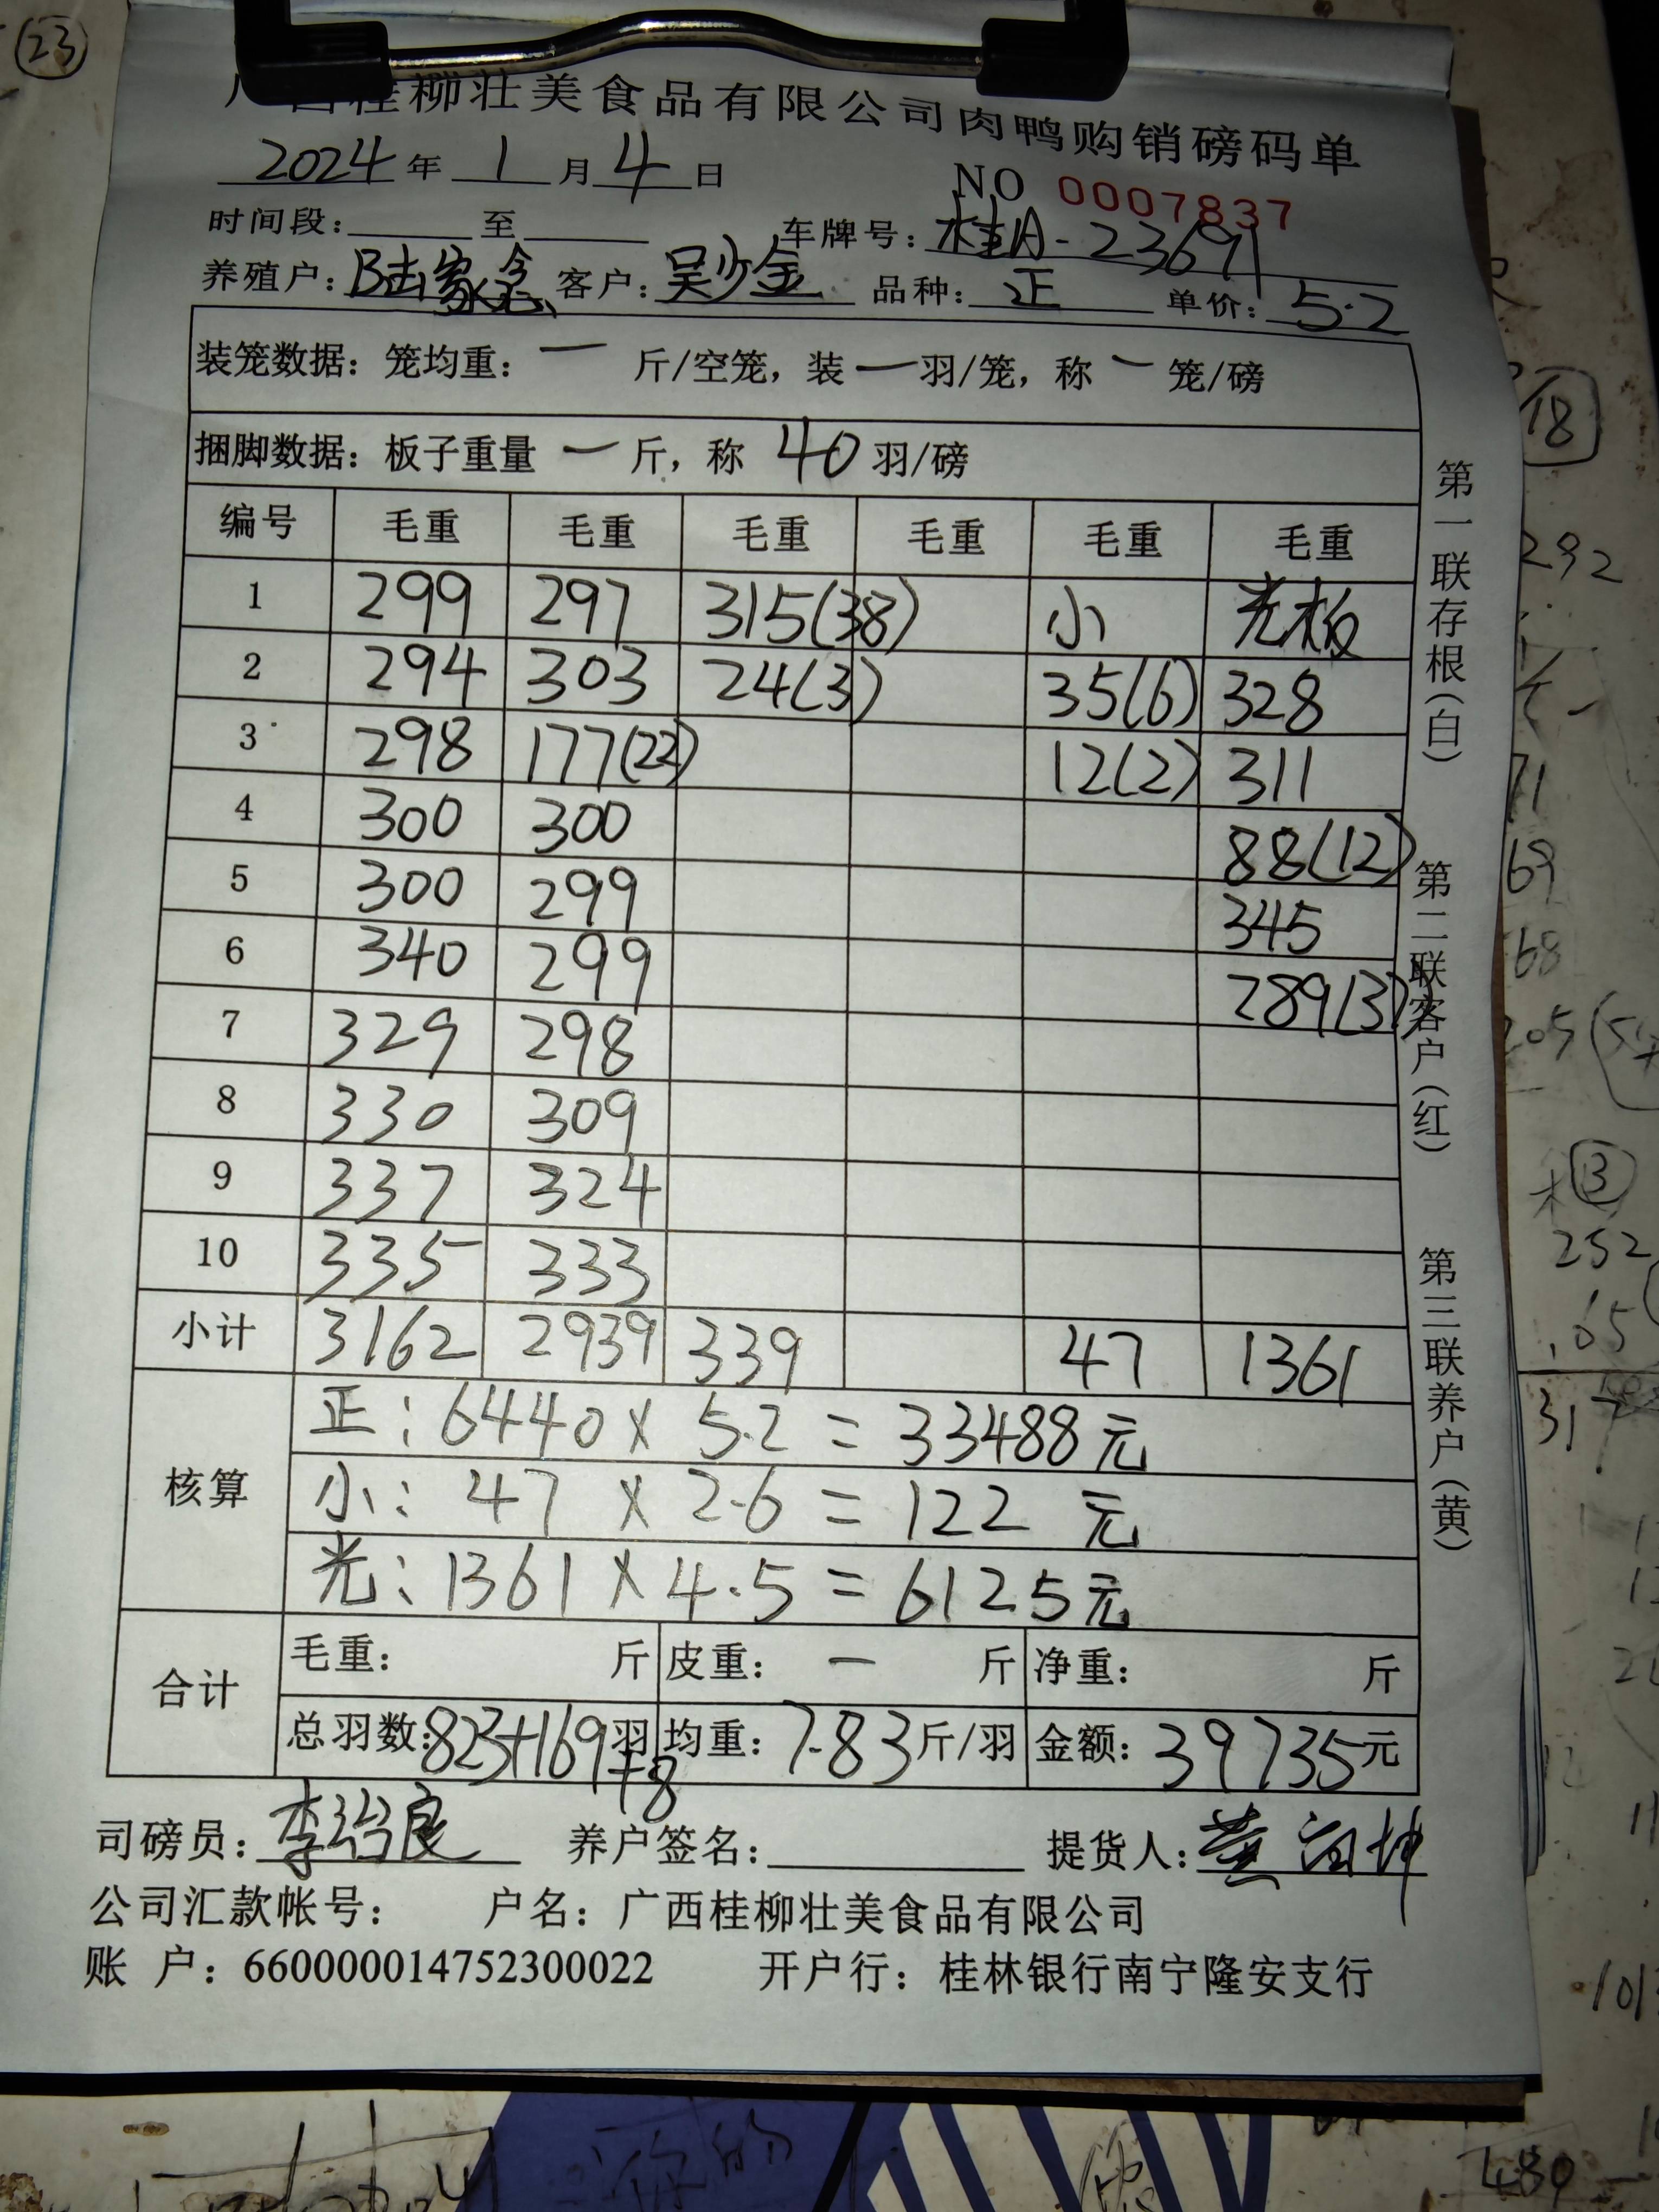 广西桂柳壮美食品有限公司肉鸭购销磅码单
2024年1月4日
NO 0007837
时间段: 至 车牌号: 桂A-23691
养殖户: B陆家念 客户: 吴少金 品种: 正 单价: 5.2
装笼数据: 笼均重: 一 斤/空笼, 装一羽/笼, 称一笼/磅
捆脚数据: 板子重量 一 斤, 称 40 羽/磅
编号 毛重 毛重 毛重 毛重 毛重 毛重
1 299 297 315(38) 小 光板
2 294 303 24(3) 35(6) 328
3 298 177(22) 12(2) 311
4 300 300 88(12)
5 300 299 345
6 340 299 289(37)
7 329 298
8 330 309
9 337 324
10 335 333
小计 3162 2939 339 47 1361
核算
正: 6440 x 5.2 = 33488元
小: 47 x 2.6 = 122 元
光: 1361 x 4.5 = 6125元
合计
毛重: 斤 皮重: 一 斤 净重: 斤
总羽数: 823+169+8羽 均重: 7.83斤/羽 金额: 39735元
司磅员: 李治良 养户签名: 提货人:
公司汇款帐号: 户名: 广西桂柳壮美食品有限公司
账 户: 660000014752300022 开户行: 桂林银行南宁隆安支行
第一联存根(白)
第二联客户(红)
第三联养户(黄)
23
18
292
71
69
68
3
252
65
480